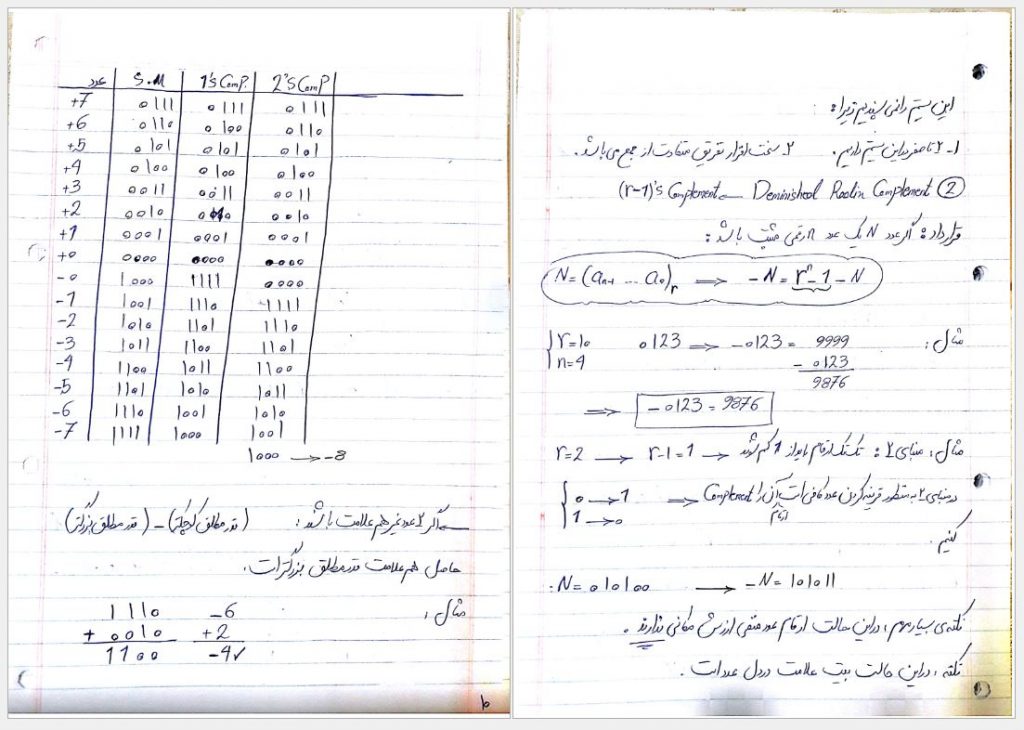 عدد S.M 1'sComP. 2'sComP
+7 0111 0111 0111
+6 0110 0100 0110
+5 0101 0101 0101
+4 0100 0100 0100
+3 0011 0011 0011
+2 0010 0010 0010
+1 0001 0001 0001
+0 0000 0000 0000
-0 1000 1111 0000
-1 1001 1110 1111
-2 1010 1101 1110
-3 1011 1100 1101
-4 1100 1011 1100
-5 1101 1010 1011
-6 1110 1001 1010
-7 1111 1000 1001
1000 → -8
اگر 2 عدد غیر هم علامت باشد: (قدر مطلق کوچکتر) - (قدر مطلق بزرگتر)
حاصل هم علامت قدر مطلق بزرگتر است.
مثال:
1110 -6
+ 0010 +2
1100 -4✓
این سیستم را نمی پسندیم زیرا:
1- 2 تا صفر در این سیستم داریم. 2- سخت افزار تفریق متفاوت از جمع می باشد.
② Deminished Radix Complement (r-1)'s Complement
قرارداد: اگر عدد N یک عدد n رقمی مثبت باشد:
N = (aₙ₋₁ ... a₀)r ⟹ -N = rⁿ-1 - N
مثال: { r=10 0123 ⟹ -0123 = 9999
n=4 - 0123
9876
⟹ -0123 = 9876
مثال: مبنای 2: تک تک ارقام باید از 1 کم شوند ← r=2 → r-1=1
در مبنای 2 به منظور قرینه کردن عدد کافی است ارقام آن را Complement ⟸ { 0→1
1→0
کنیم.
N = 010100 → -N = 101011
نکته ی بسیار مهم: در این حالت ارقام عدد منفی ارزش مکانی ندارند.
نکته: در این حالت بیت علامت در دل عدد است.